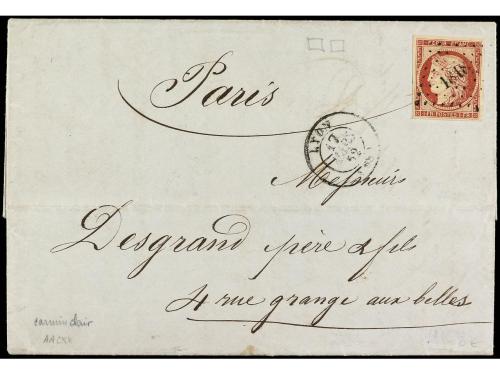 Paris
LYON
17
52
Messieurs
Desgrand père & fils
4 rue grange aux belles
carmin clair